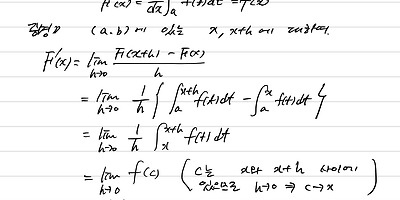 F'(x) = d/dx ∫_a^x f(t)dt = f(x)
증명) (a, b) 에 있는 x, x+h 에 대하여,
F'(x) = lim_{h→0} (F(x+h) - F(x))/h
= lim_{h→0} 1/h { ∫_a^{x+h} f(t)dt - ∫_a^x f(t)dt }
= lim_{h→0} 1/h ∫_x^{x+h} f(t)dt
= lim_{h→0} f(c) ( c는 x와 x+h 사이에
있으므로 h→0 ⇒ c→x )